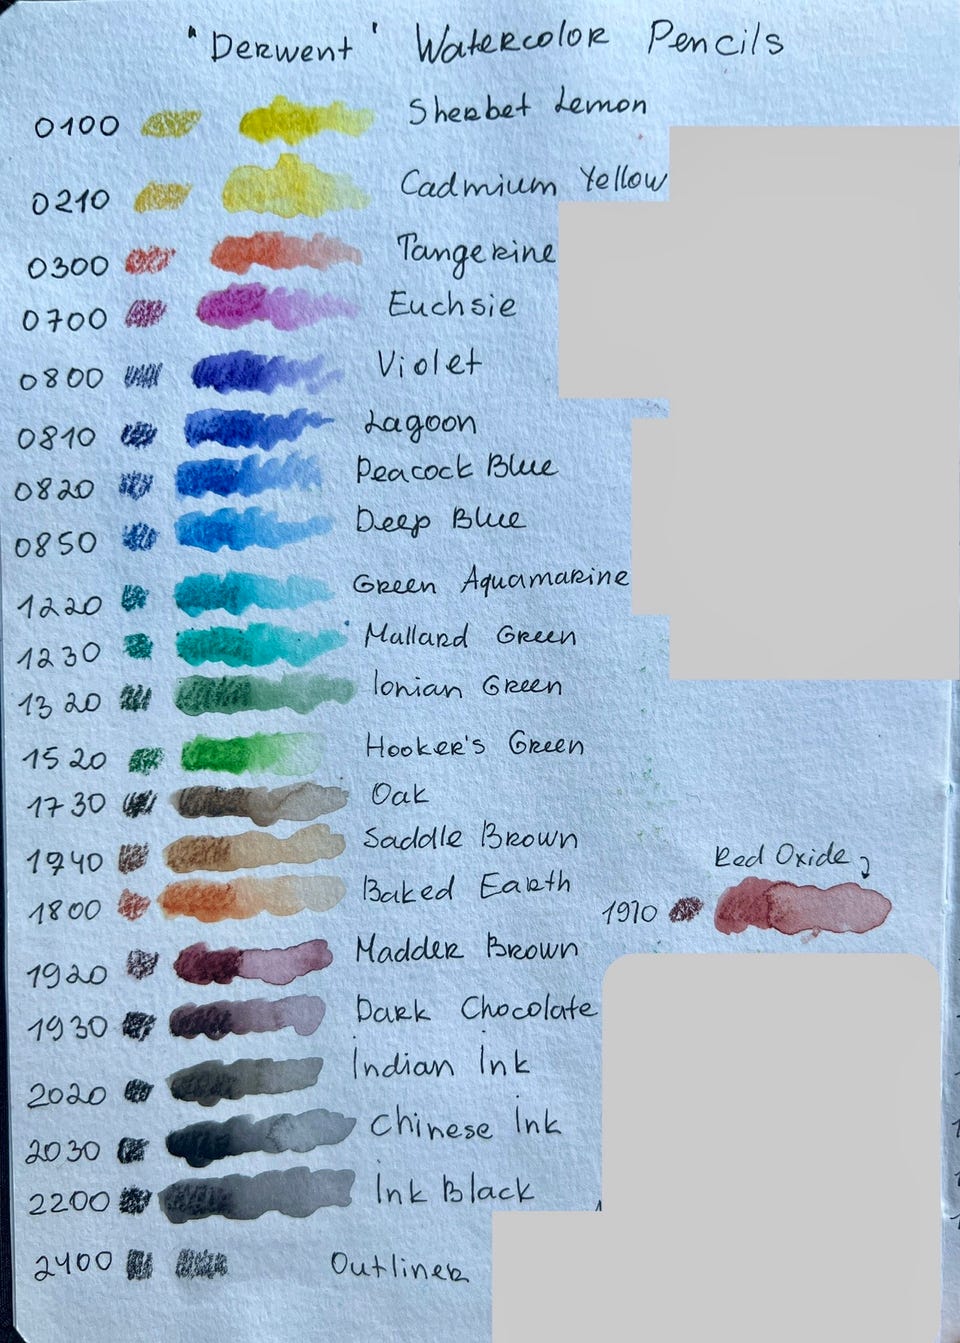 "Derwent" Watercolor Pencils
0100 Sherbet Lemon
0210 Cadmium Yellow
0300 Tangerine
0700 Euchsie
0800 Violet
0810 Lagoon
0820 Peacock Blue
0850 Deep Blue
1220 Green Aquamarine
1230 Mallard Green
1320 Ionian Green
1520 Hooker's Green
1730 Oak
1740 Saddle Brown
1800 Baked Earth
Red Oxide
1910
1920 Madder Brown
1930 Dark Chocolate
2020 Indian Ink
2030 Chinese Ink
2200 Ink Black
2400 Outliner